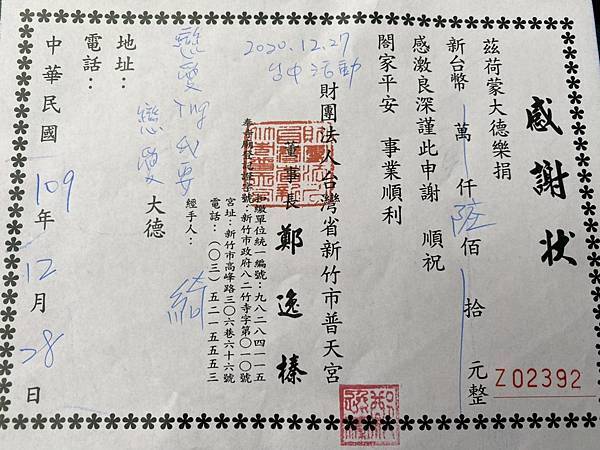 感謝狀
茲荷蒙大德樂捐
新台幣 萬 仟 陸 佰 拾 元整
感激良深謹此申謝 順祝
閤家平安 事業順利
2020.12.27
台中活動
財團法人台灣省新竹市普天宮
董事長 鄭逸榛
扣繳單位統一編號：九八二八四一一五
奉寺廟登記證字號：新竹市政府八二竹寺字第〇一〇號
宮址：新竹市高峰路三〇六巷六十六號
電話：(〇三)五二一五五五三
經手人： 綺
戀愛 我要
戀愛 大德
地址：
電話：
中華民國 109 年 12 月 28 日
Z 02392